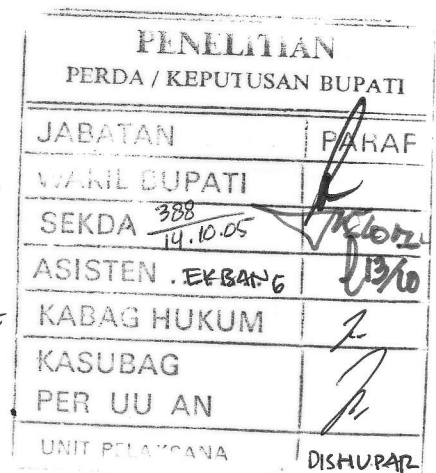 PENELITIAN
PERDA / KEPUTUSAN BUPATI
JABATAN PARAF
WAKIL BUPATI
SEKDA 388 14.10.05
ASISTEN . EKBANG 13/10
KABAG HUKUM
KASUBAG
PER UU AN
UNIT PELAKSANA DISHUPAR